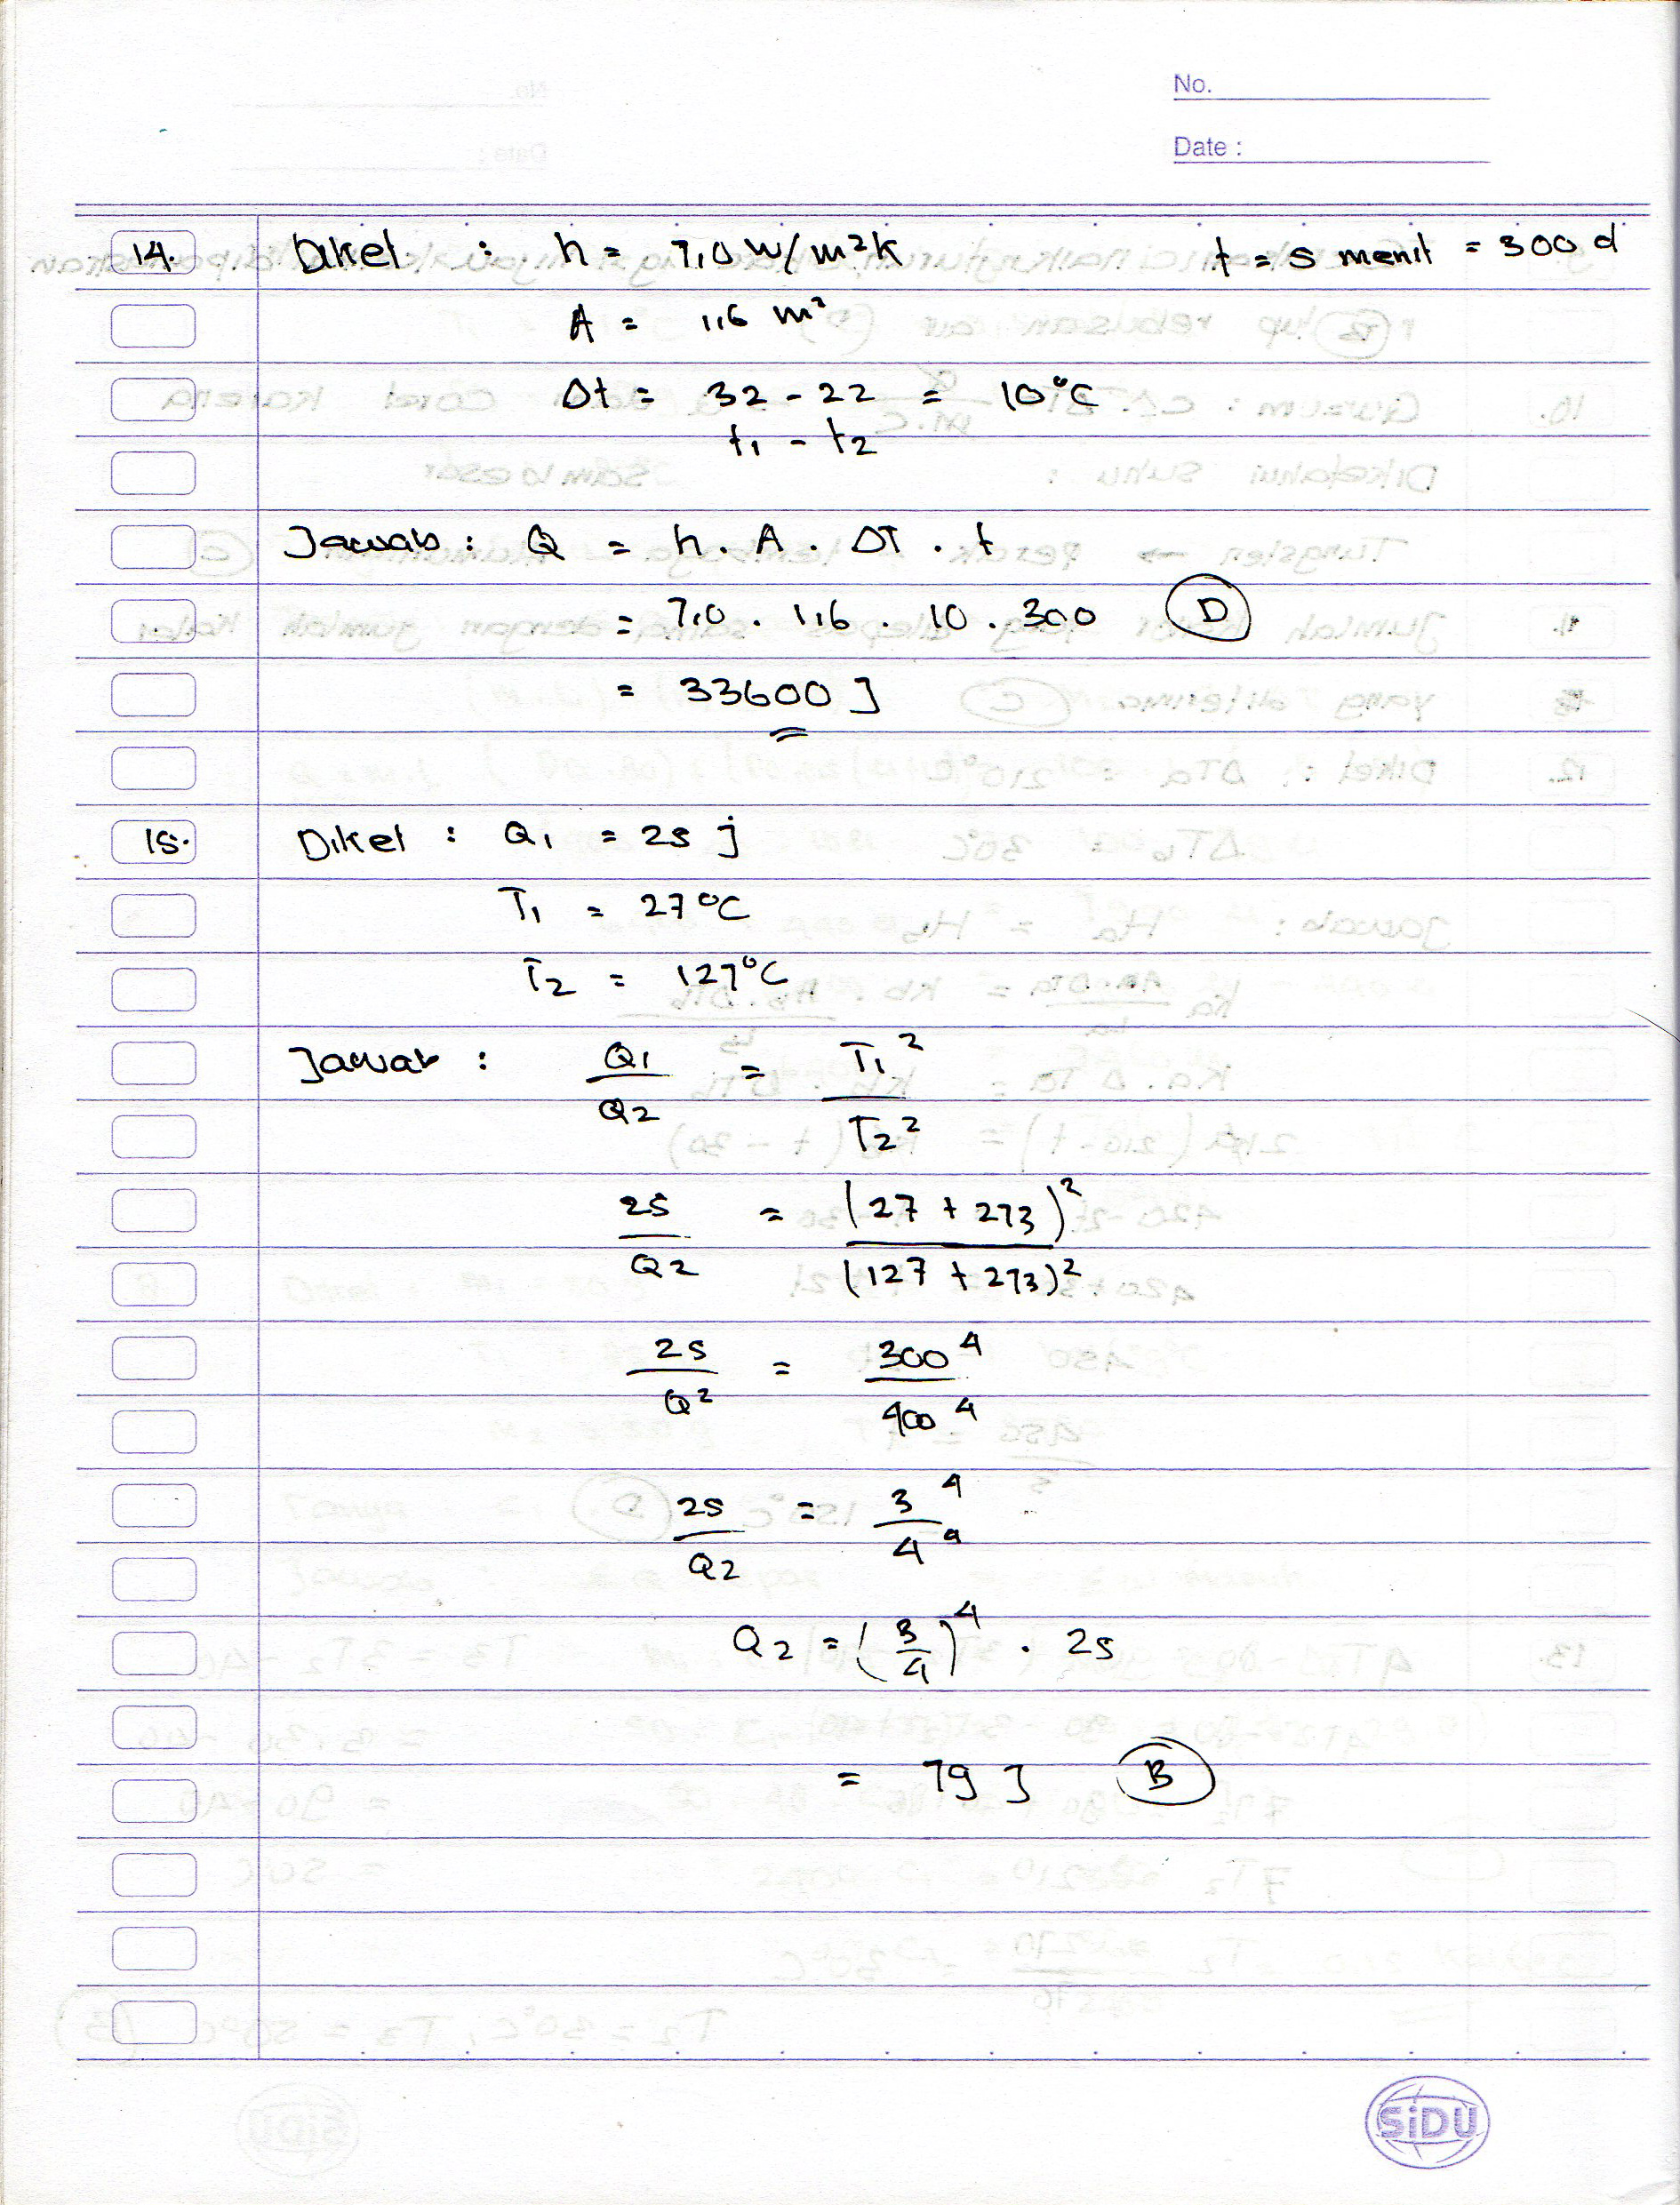 No.
Date :
14. Diket : h = 7,0 W/m²K t = 5 menit = 300 d
A = 1,6 m²
Δt = 32 - 22 = 10°C
t₁ - t₂
Jawab : Q = h . A . ΔT . t
= 7,0 . 1,6 . 10 . 300 D
= 33600 J
15. Diket : Q₁ = 25 j
T₁ = 27°C
T₂ = 127°C
Jawab : Q₁/Q₂ = T₁²/T₂²
25/Q₂ = (27 + 273)²/(127 + 273)²
25/Q² = 300⁴/400⁴
25/Q₂ = 3⁴/4⁴
Q₂ = (3/4)⁴ . 25
= 79 J B
SiDU